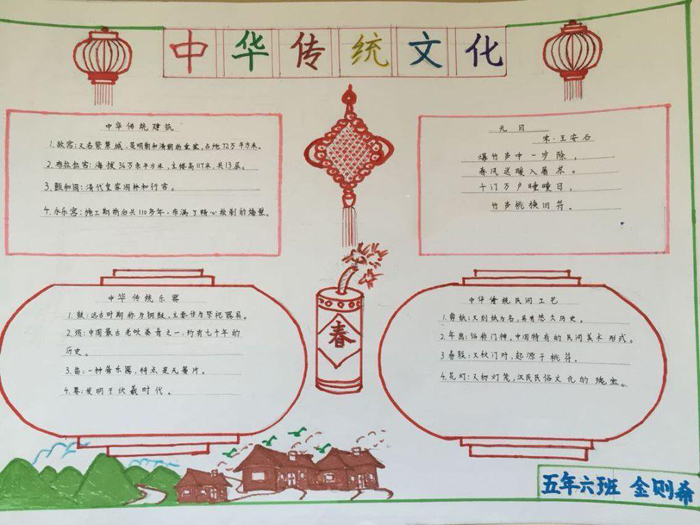 中华传统文化
中华传统建筑
1.故宫:又名紫禁城,是明朝和清朝的皇家,占地72万平方米。
2.布拉拉宫:海拔36万余平方米,主楼高117米,共13层。
3.颐和园:清代皇家园林和行宫。
4.永乐宫:施工期前后共110多年,布满了精心绘制的墙壁。
元日
宋·王安石
爆竹声中一岁除,
春风送暖入屠苏。
千门万户曈曈日,
竹声桃换旧符。
中华传统乐器
1.鼓:远古时期称为铜鼓,主要作为祭祀器具。
2.埙:中国最古老吹奏音之一,约有七千年的
历史。
3.笛:一种管乐器,特点是
4.琴:发明于伏羲时代。
春
中华传统民间工艺
1.剪纸:又剁纸为名,具有悠久历史。
2.年画:俗称门神,中国特有的民间美术形式。
3.春联:又称门对,起源于桃符。
4.花灯:又称灯笼,汉民民俗文化的瑰宝。
五年六班 金则希